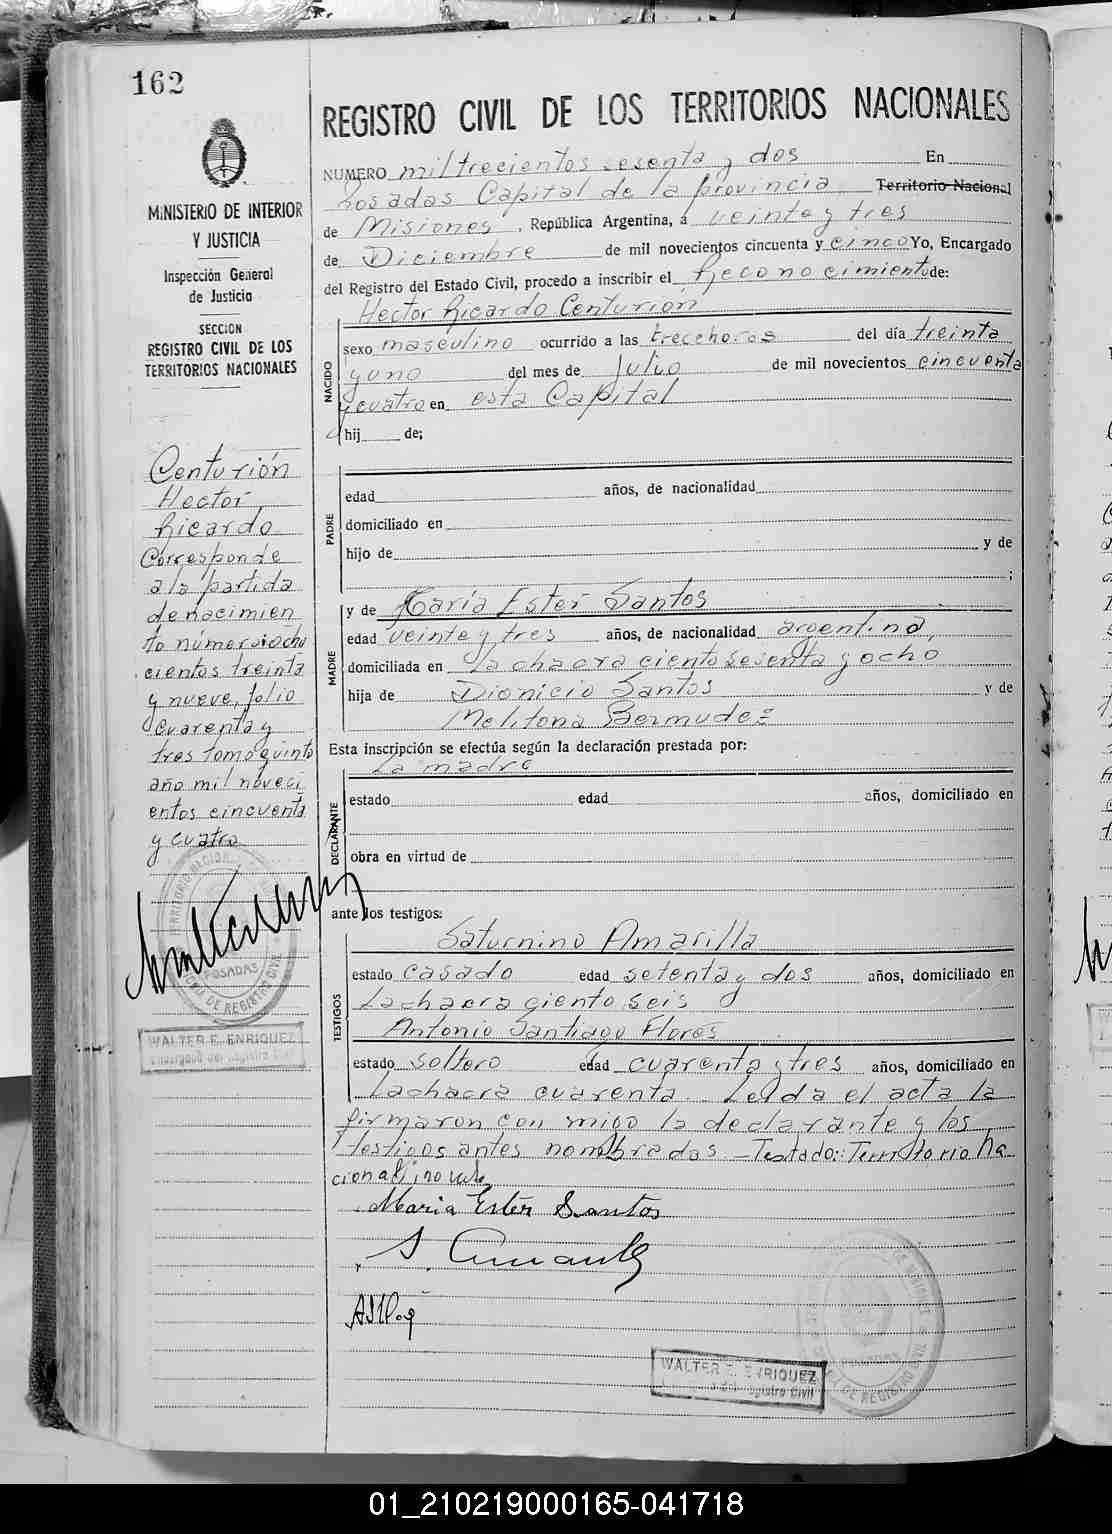 162
MINISTERIO DE INTERIOR
Y JUSTICIA
Inspección General
de Justicia
SECCION
REGISTRO CIVIL DE LOS
TERRITORIOS NACIONALES
Centurión
Hector
Ricardo
Corresponde
a la partida
de nacimien
to número ocho
cientos treinta
y nueve, folio
cuarenta y
tres tomo quinto
año mil noveci
entos cincuenta
y cuatro
POSADAS
WALTER E. ENRIQUEZ
Encargado del Registro Civil
REGISTRO CIVIL DE LOS TERRITORIOS NACIONALES
NUMERO mil trecientos sesenta y dos En
Posadas Capital de la provincia Territorio Nacional
de Misiones, República Argentina, á veinte y tres
de Diciembre de mil novecientos cincuenta y cinco Yo, Encargado
del Registro del Estado Civil, procedo a inscribir el Reconocimiento de:
Hector Ricardo Centurión
NACIDO
sexo masculino ocurrido a las trece horas del día treinta
y uno del mes de Julio de mil novecientos cincuenta
y cuatro en esta Capital
hij de;
PADRE
edad años, de nacionalidad
domiciliado en
hijo de y de
;
MADRE
y de María Ester Santos
edad veinte y tres años, de nacionalidad argentina,
domiciliada en La chacra ciento sesenta y ocho
hija de Dionicio Santos y de
Melitona Bermudez
Esta inscripción se efectúa según la declaración prestada por:
La madre
DECLARANTE
estado edad años, domiciliado en
obra en virtud de
ante los testigos:
TESTIGOS
Saturnino Amarilla
estado casado edad setenta y dos años, domiciliado en
La chacra ciento seis
Antonio Santiago Flores
estado soltero edad cuarenta y tres años, domiciliado en
La chacra cuarenta. Leida el acta la
firmaron con migo la declarante y los
testigos antes nombrados. - Testado: Territorio Na
cional: no vale
Maria Ester Santos
WALTER E. ENRIQUEZ
Registro Civil
01_210219000165-041718